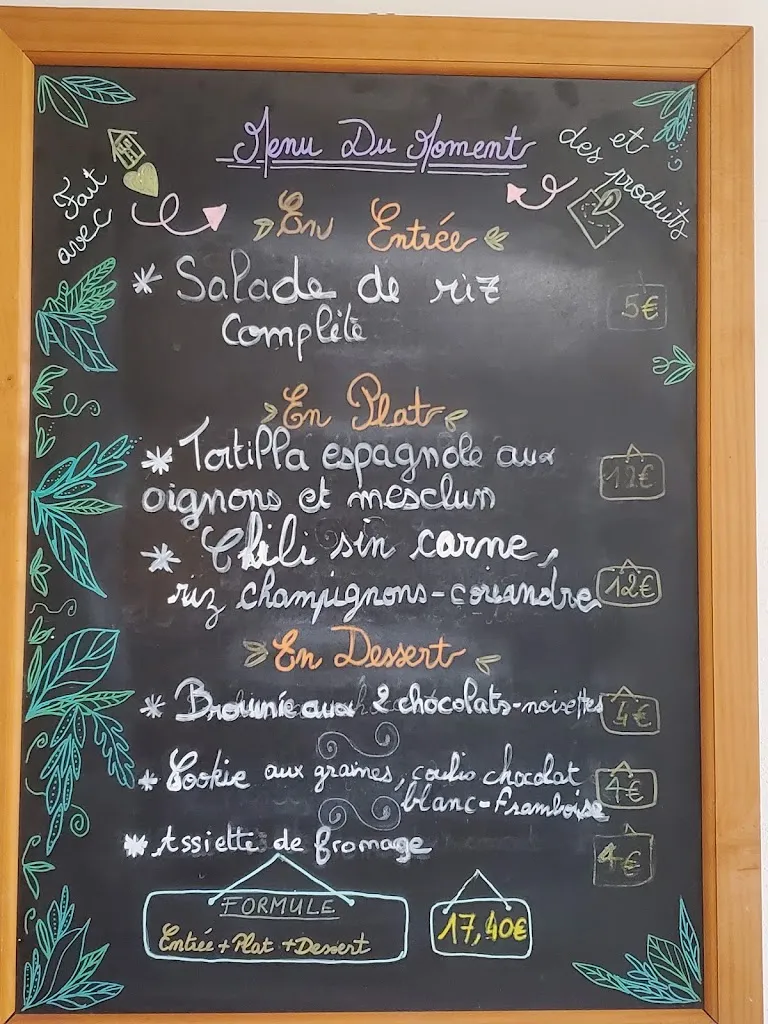 Menu Du Moment
Fait
avec
et
des produits
En Entrée
* Salade de riz
complète
5€
En Plat
* Tortilla espagnole aux
oignons et mesclun
12€
* Chili sin carne,
riz champignons-coriandre
12€
En Dessert
* Brownie aux 2 chocolats-noisettes
4€
* Cookie aux graines, coulis chocolat
blanc-framboise
4€
* Assiette de fromage
4€
FORMULE
Entrée + Plat + Dessert
17,40€